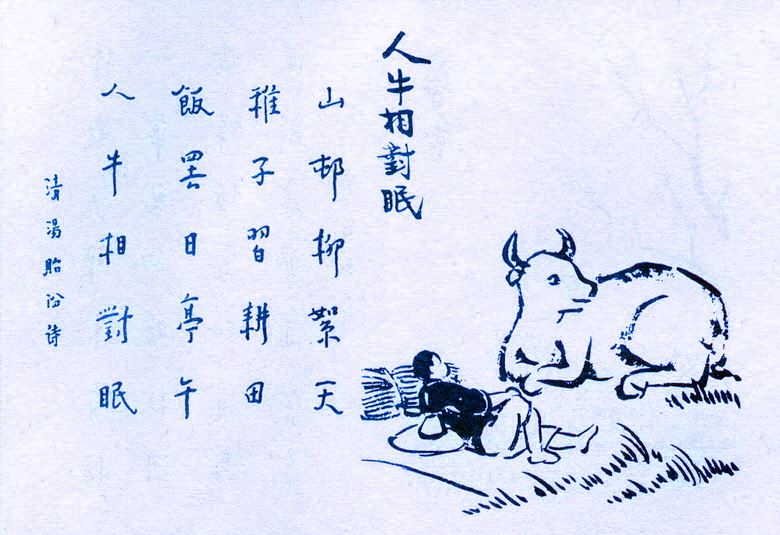 人牛相對眠
山邨柳絮天
稚子習耕田
飯罢日亭午
人牛相對眠
清湯貽汾詩